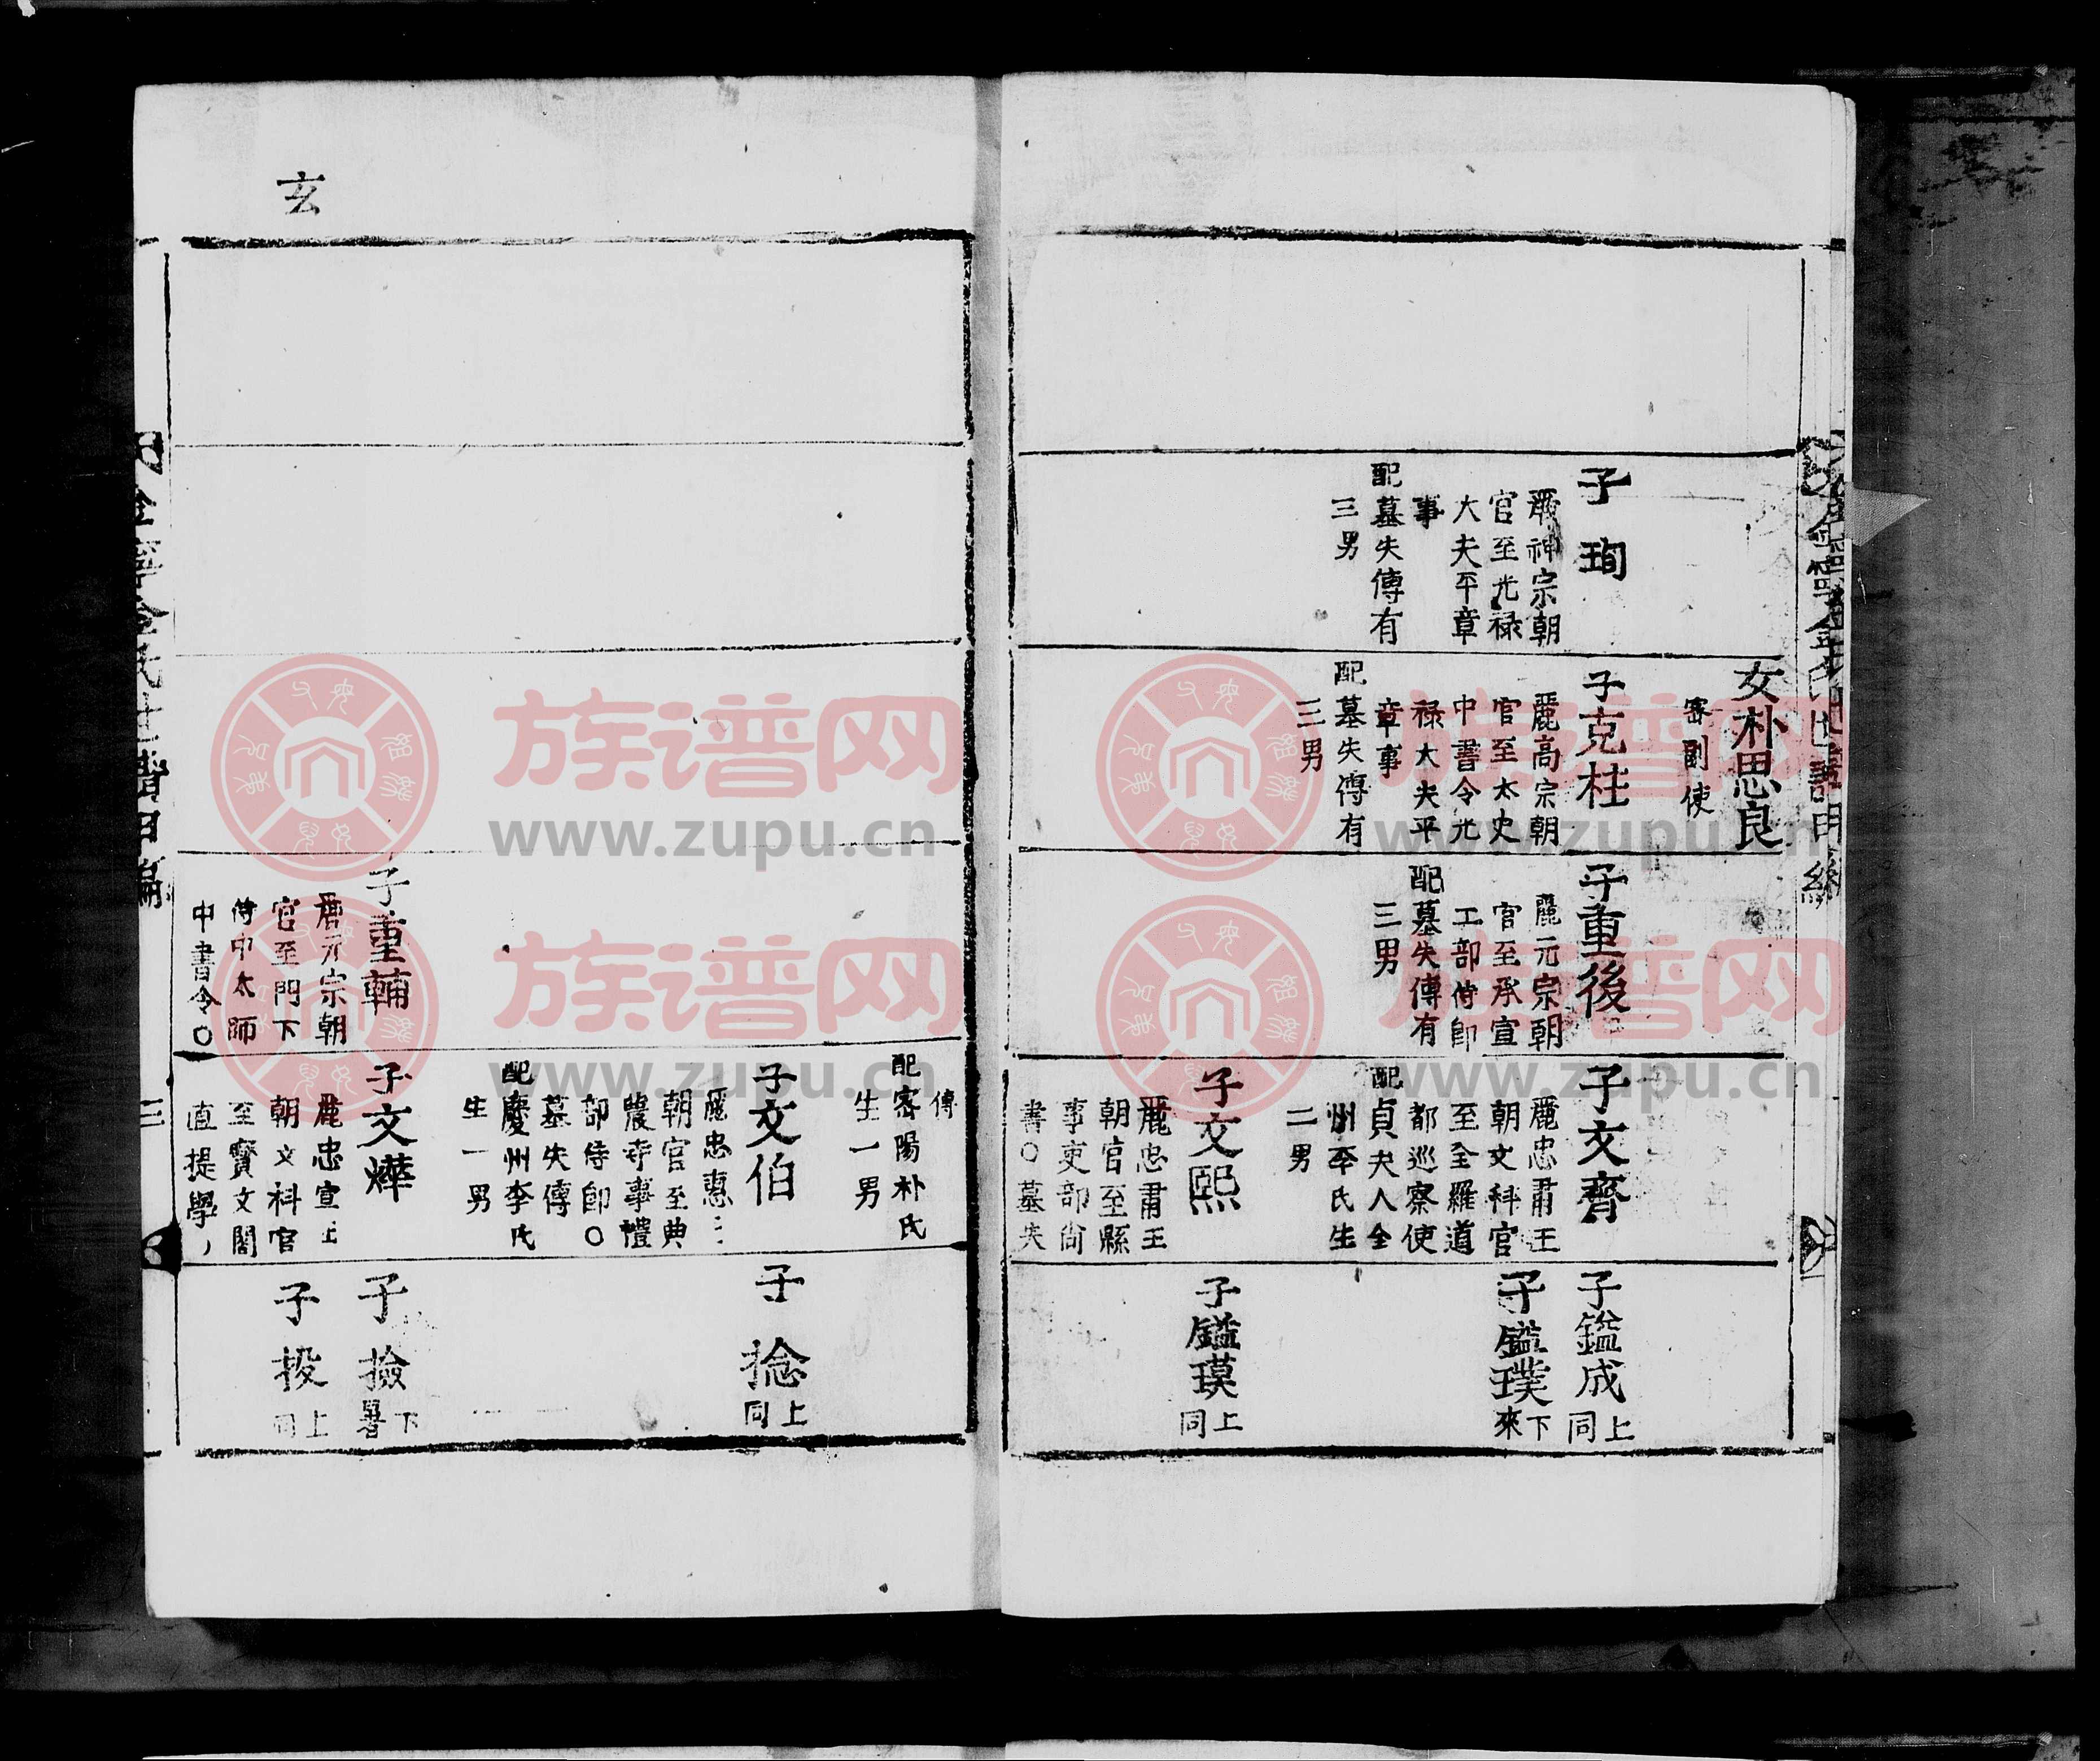 女朴思良
密副使
子珣
麗神宗朝
官至光禄
大夫平章
事
配墓失傳有
三男
子克柱
麗高宗朝
官至太史
中書令光
禄大夫平
章事
配墓失傳有
三男
子重後
麗元宗朝
官至承宣
工部侍郎
配墓失傳有
三男
子文齊
麗忠肅王
朝文科官
至全羅道
都巡察使
配貞夫人全
州李氏生
二男
子文熙
麗忠肅王
朝官至縣
事吏部尚
書〇墓失
子鎰成
上同
子鎰璞
下來
子鎰瑛
上同
傳
配密陽朴氏
生一男
子文伯
麗忠惠
朝官至典
農寺事禮
部侍郎〇
墓失傳
配慶州李氏
生一男
子捻
上同
子重輔
麗元宗朝
官至門下
侍中太師
中書令〇
子文燁
麗忠宣王
朝文科官
至寶文閣
直提學
子撿
下
子投
上同
玄
三
族谱网
www.zupu.cn
族谱网
www.zupu.cn
族谱网
www.zupu.cn
族谱网
www.zupu.cn